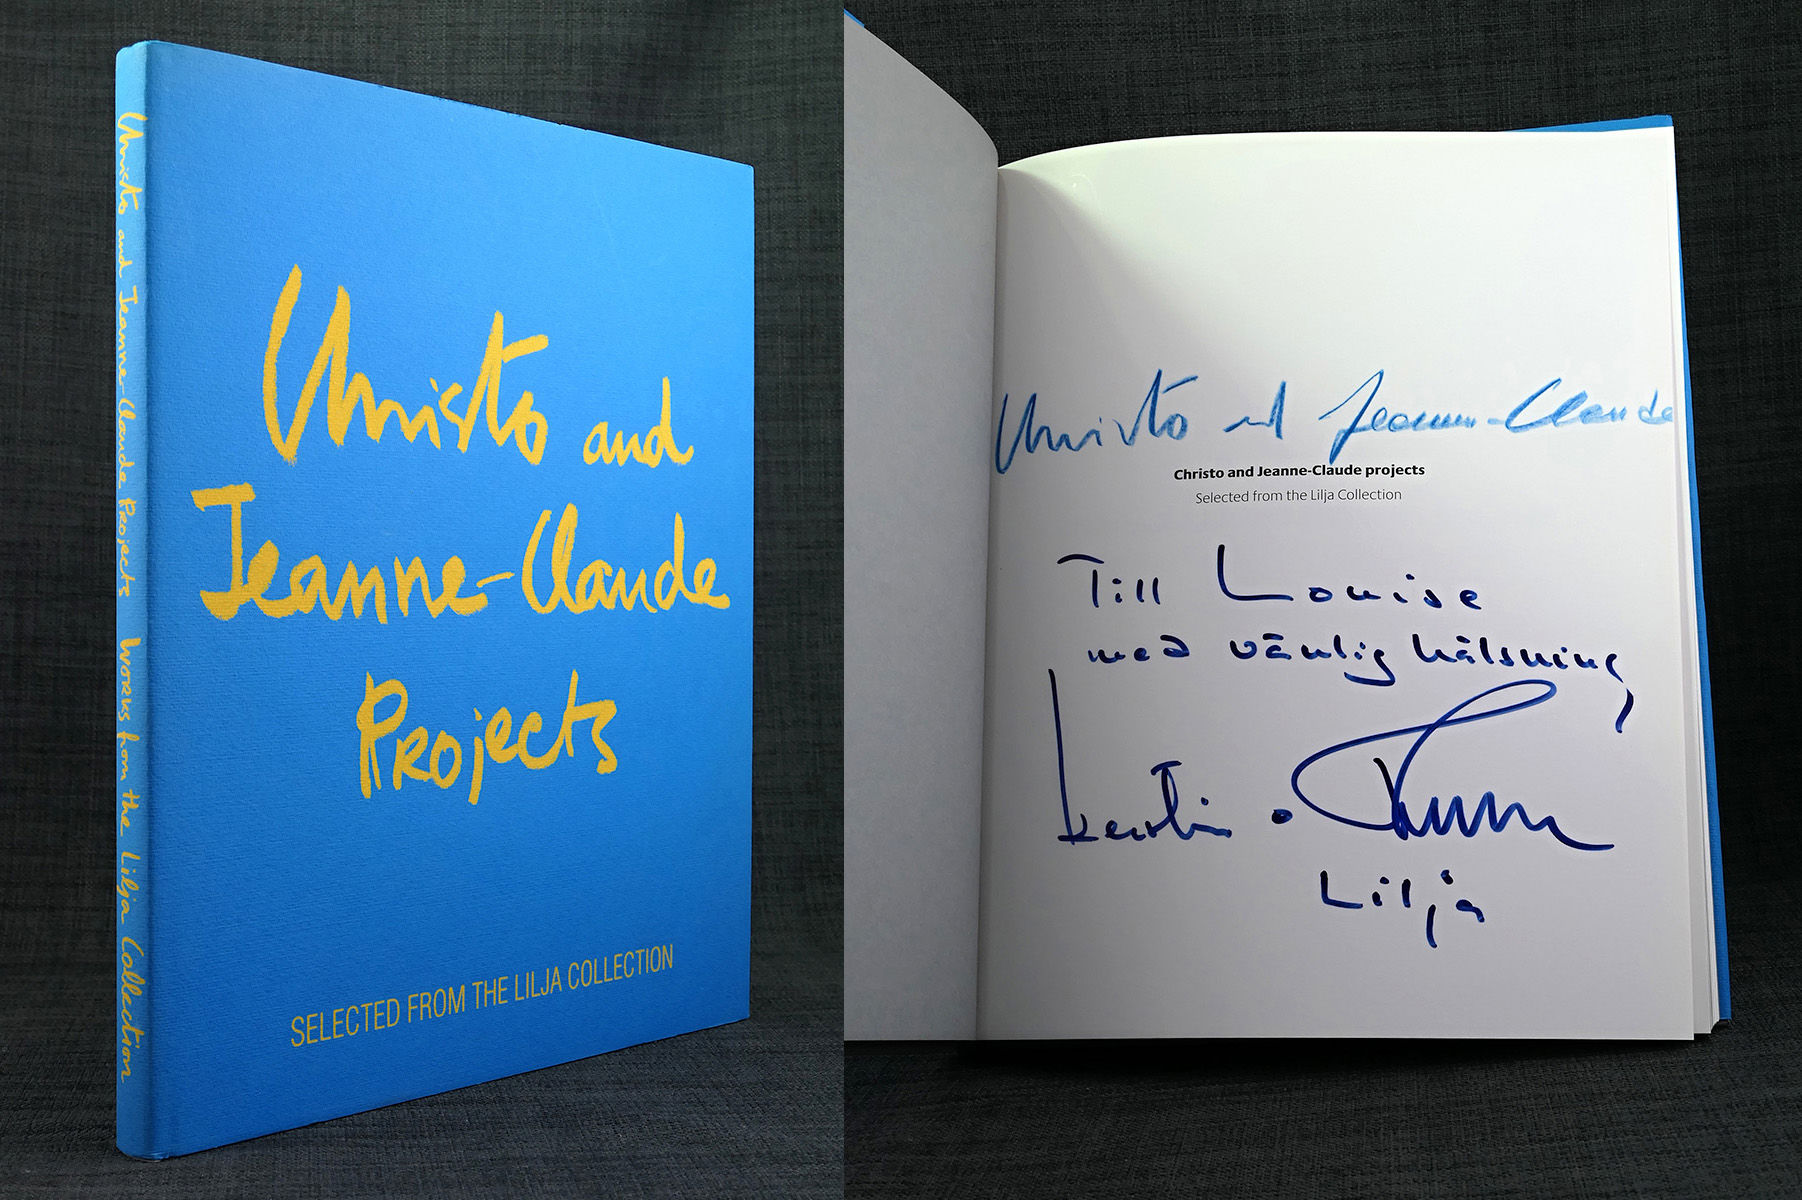 Christo and Jeanne-Claude Projects Works from the Lilja Collection
Christo and
Jeanne-Claude
Projects
SELECTED FROM THE LILJA COLLECTION
Christo and Jeanne-Claude
Christo and Jeanne-Claude projects
Selected from the Lilja Collection
Till Louise
med vänlig hälsning,
Kerstin o
Lilja